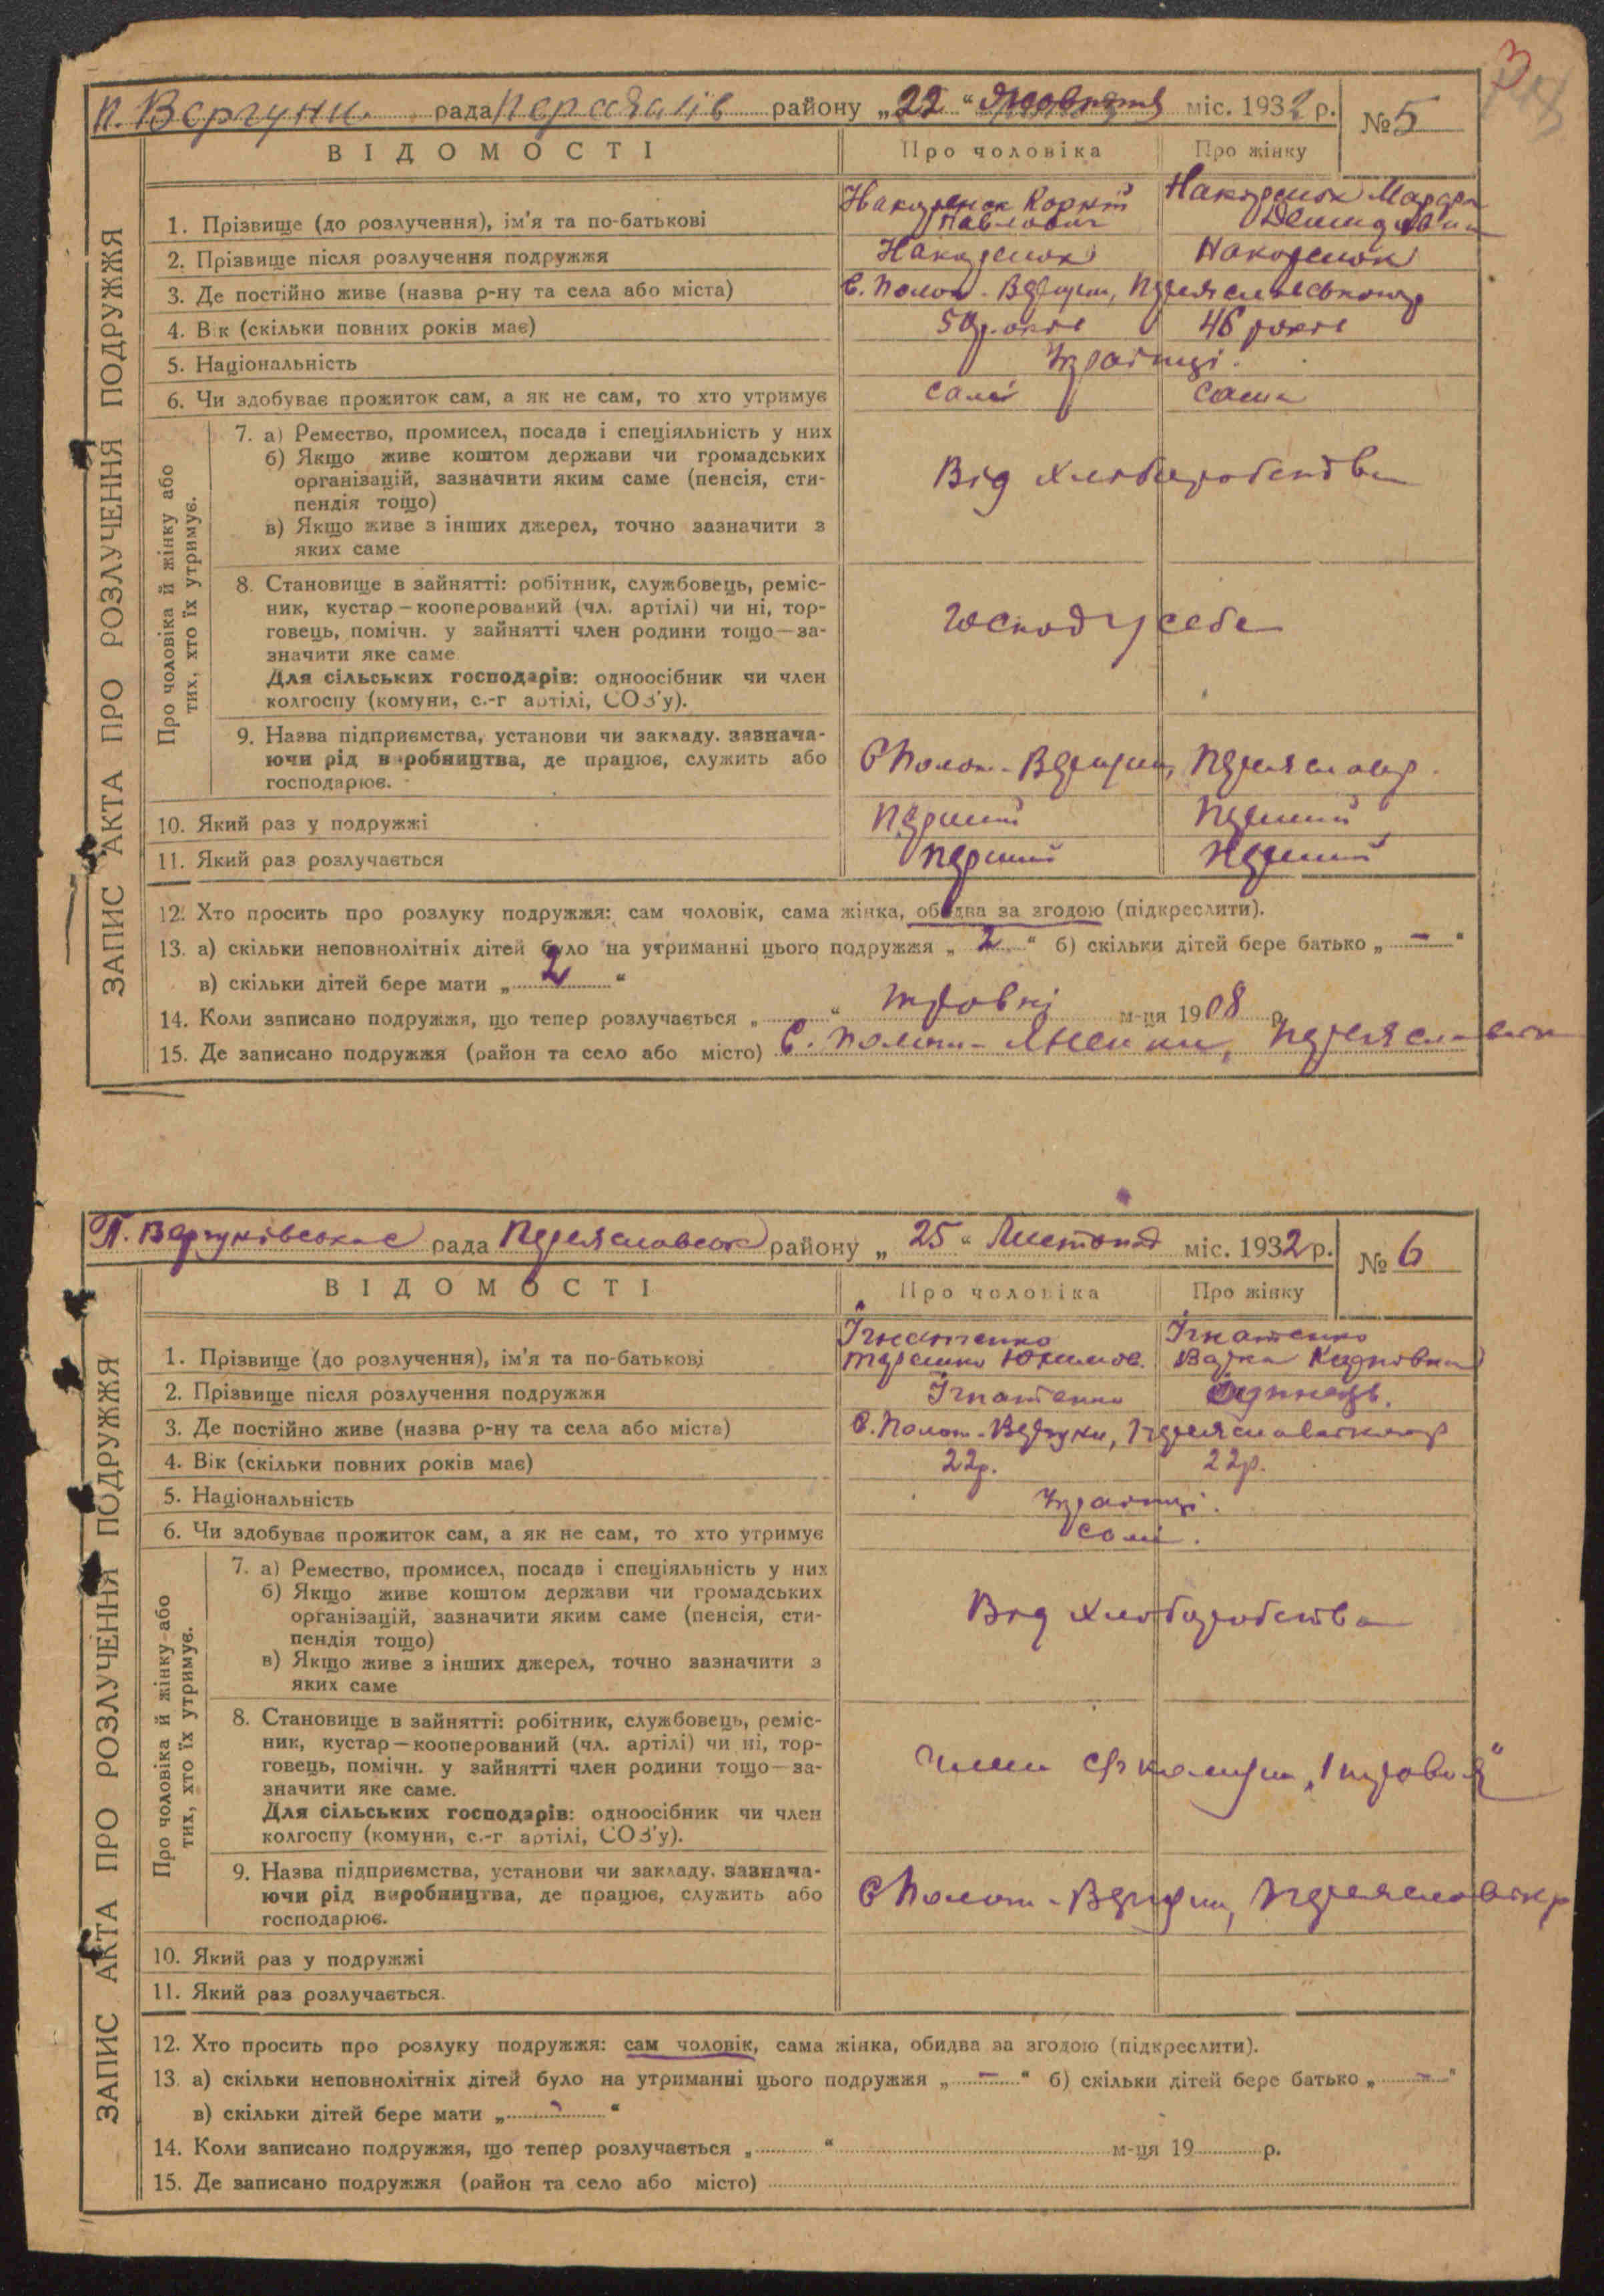 3
П. Вергуни рада району „22“ Жовтня міс. 1932 р. № 5
ВІДОМОСТІ Про чоловіка Про жінку
ЗАПИС АКТА ПРО РОЗЛУЧЕННЯ ПОДРУЖЖЯ
1. Прізвище (до розлучення), ім'я та по-батькові
Павлович
2. Прізвище після розлучення подружжя
3. Де постійно живе (назва р-ну та села або міста) С. Полов-
4. Вік (скільки повних років має) 50 46
5. Національність
6. Чи здобуває прожиток сам, а як не сам, то хто утримує сама
Про чоловіка й жінку або
тих, хто їх утримує.
7. а) Ремество, промисел, посада і спеціяльність у них
б) Якщо живе коштом держави чи громадських
організацій, зазначити яким саме (пенсія, сти- Від хліборобства
пендія тощо)
в) Якщо живе з інших джерел, точно зазначити з
яких саме
8. Становище в зайнятті: робітник, службовець, реміс-
ник, кустар—кооперований (чл. артілі) чи ні, тор-
говець, помічн. у зайнятті член родини тощо—за- Господ у себе
значити яке саме
Для сільських господарів: одноосібник чи член
колгоспу (комуни, с.-г артілі, СОЗ'у).
9. Назва підприємства, установи чи закладу. зазнача-
ючи рід виробництва, де працює, служить або
господарює.
10. Який раз у подружжі Перший Перший
11. Який раз розлучається перший Перший
12. Хто просить про розлуку подружжя: сам чоловік, сама жінка, обидва за згодою (підкреслити).
13. а) скільки неповнолітніх дітей було на утриманні цього подружжя „2“ б) скільки дітей бере батько „–“
в) скільки дітей бере мати „2“
14. Коли записано подружжя, що тепер розлучається „ “ м-ця 1908 р.
15. Де записано подружжя (район та село або місто) С.
П. Вергунівськає рада Переяславськ району „25“ Листопад міс. 1932 р. № 6
ВІДОМОСТІ Про чоловіка Про жінку
ЗАПИС АКТА ПРО РОЗЛУЧЕННЯ ПОДРУЖЖЯ
Ігнатенко Ігнатенко
1. Прізвище (до розлучення), ім'я та по-батькові
2. Прізвище після розлучення подружжя Ігнатенко Одинець.
3. Де постійно живе (назва р-ну та села або міста)
4. Вік (скільки повних років має) 22р. 22р.
5. Національність
6. Чи здобуває прожиток сам, а як не сам, то хто утримує самі.
Про чоловіка й жінку або
тих, хто їх утримує.
7. а) Ремество, промисел, посада і спеціяльність у них
б) Якщо живе коштом держави чи громадських
організацій, зазначити яким саме (пенсія, сти- Від хліборобства
пендія тощо)
в) Якщо живе з інших джерел, точно зазначити з
яких саме
8. Становище в зайнятті: робітник, службовець, реміс-
ник, кустар—кооперований (чл. артілі) чи ні, тор-
говець, помічн. у зайнятті член родини тощо—за-
значити яке саме.
Для сільських господарів: одноосібник чи член
колгоспу (комуни, с.-г артілі, СОЗ'у).
9. Назва підприємства, установи чи закладу. зазнача-
ючи рід виробництва, де працює, служить або
господарює.
10. Який раз у подружжі
11. Який раз розлучається.
12. Хто просить про розлуку подружжя: сам чоловік, сама жінка, обидва за згодою (підкреслити).
13. а) скільки неповнолітніх дітей було на утриманні цього подружжя „–“ б) скільки дітей бере батько „–“
в) скільки дітей бере мати „–“
14. Коли записано подружжя, що тепер розлучається „ “ м-ця 19 р.
15. Де записано подружжя (район та село або місто)